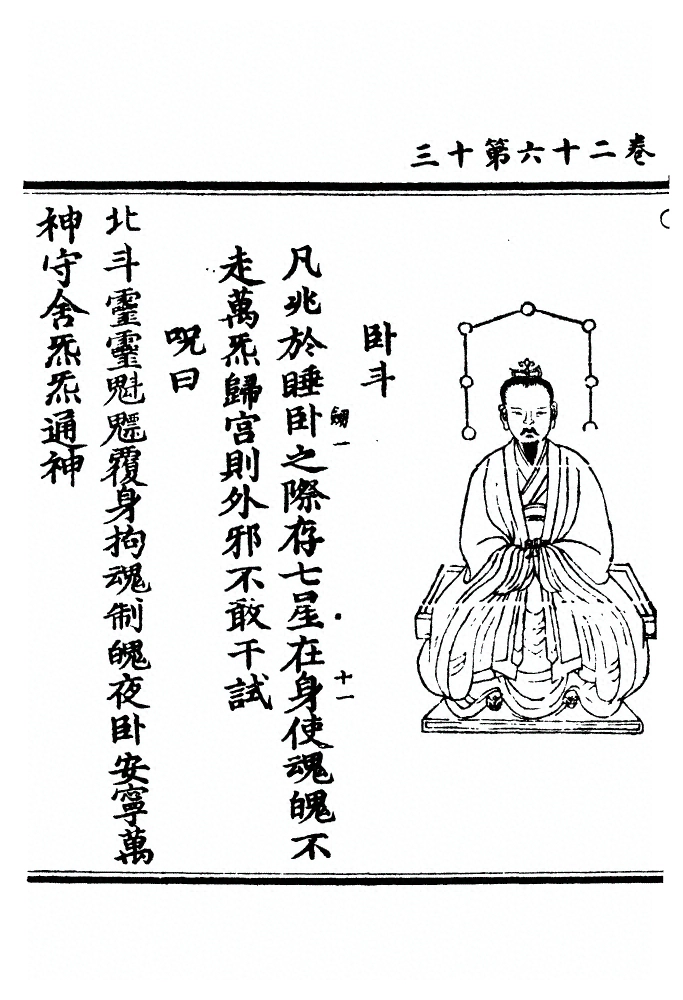 卷二十六第十三
卧斗
䎸一
十一
凡兆於睡卧之際存七星在身使魂魄不
走萬炁歸宫則外邪不敢干試
呪曰
北斗靈靈魁魒覆身拘魂制魄夜卧安寧萬
神守舍炁炁通神